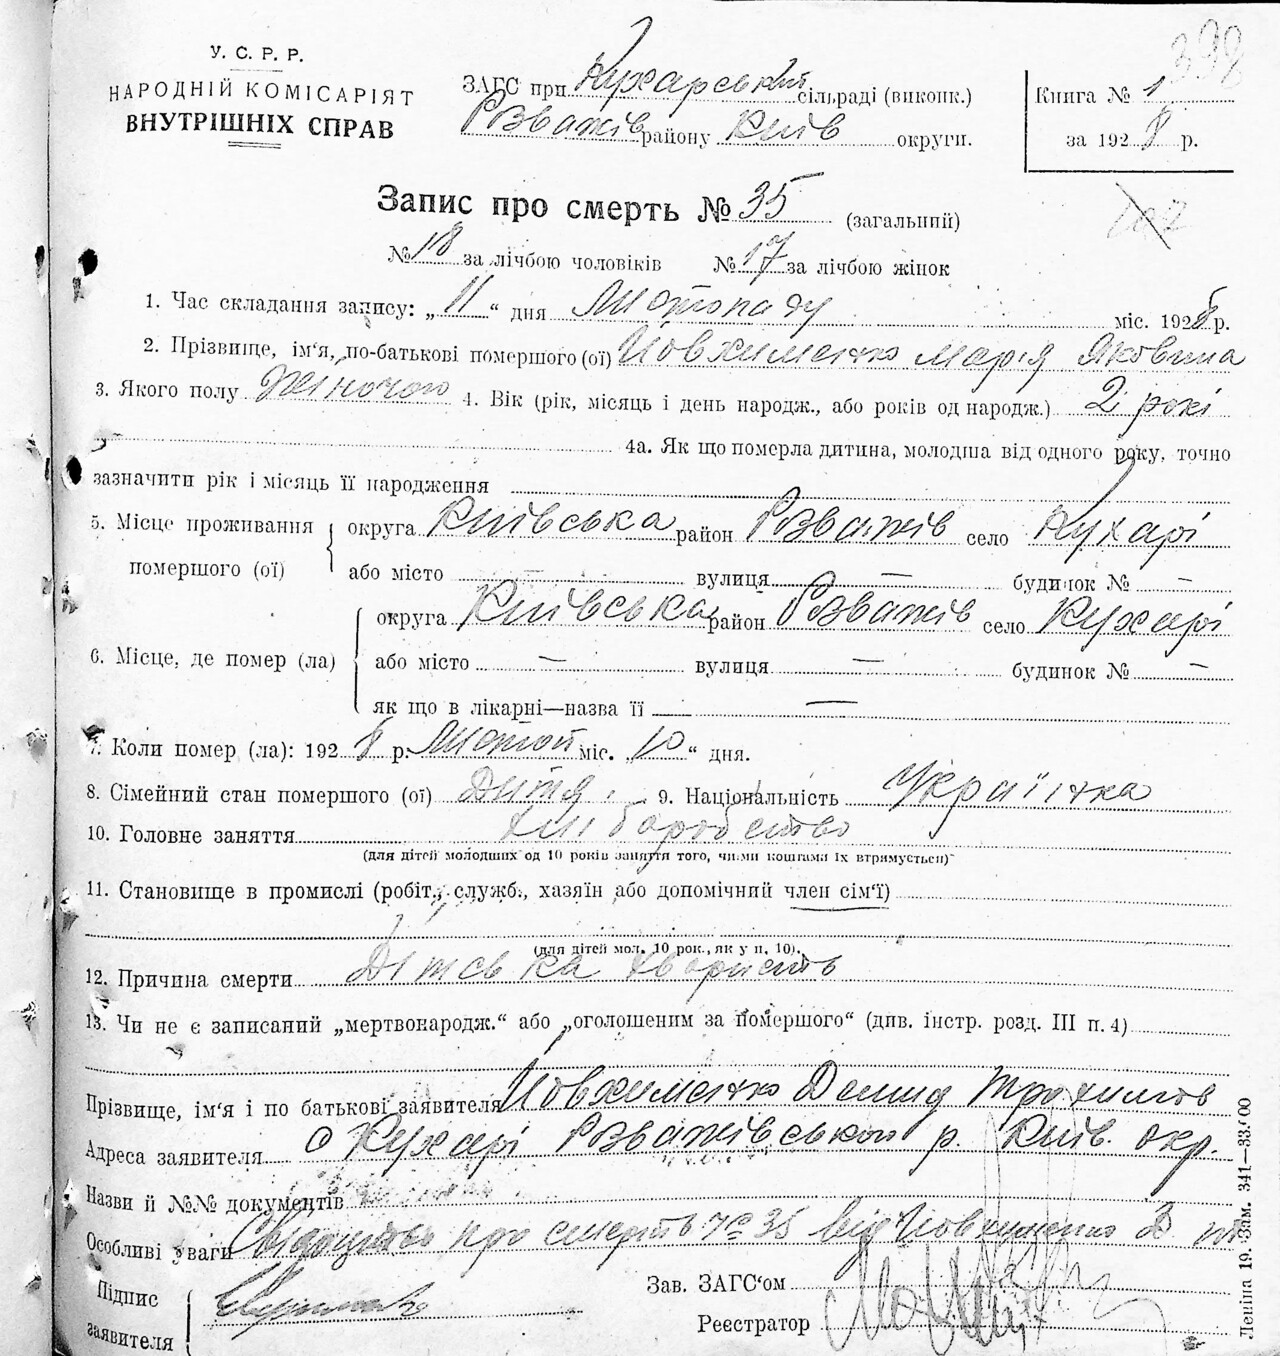 398
У. С. Р. Р.
НАРОДНІЙ КОМІСАРІЯТ
ВНУТРІШНІХ СПРАВ
ЗАГС при Кухарській сільраді (виконк.)
Розважів району Київ округи.
Книга № 1
за 1928 р.
Запис про смерть № 35 (загальний)
107
№ 18 за лічбою чоловіків № 17 за лічбою жінок
1. Час складання запису: „ 11 “ дня Листопаду міс. 1928 р.
2. Прізвище, ім'я, по-батькові помершого (ої) Йовхименко Марія Яковина
3. Якого полу Жіночого 4. Вік (рік, місяць і день народж., або років од народж.) 2 рокі
4а. Як що померла дитина, молодша від одного року, точно
зазначити рік і місяць її народження
5. Місце проживання помершого (ої) округа Київська район Розважів село Кухарі
або місто — вулиця — будинок № —
6. Місце, де помер (ла) округа Київська район Розважів село Кухарі
або місто — вулиця — будинок № —
як що в лікарні—назва її —
7. Коли помер (ла): 1928 р. Листоп міс. „ 10 “ дня.
8. Сімейний стан помершого (ої) Дитя. 9. Національність Україінка
10. Головне заняття хліборобство
(для дітей молодших од 10 років заняття того, чиїми коштами їх втрямується)
11. Становище в промислі (робіт., служб., хазяїн або допомічний член сім'ї)
(для дітей мол. 10 рок., як у п. 10).
12. Причина смерти Дітська хворість
13. Чи не є записаний „мертвонародж.“ або „оголошеним за помершого“ (див. інстр. розд. III п. 4)
Прізвище, ім'я і по батькові заявителя Йовхименко Демид Трохимов
Адреса заявителя с Кухарі Розважівського р. Київ. окр.
Назви й №№ документів
Особливі уваги Свідоцтво про смерть № 35 від Йовхименко Д
Підпис
заявителя
Зав. ЗАГС'ом
Реєстратор
Леніна 19. Зам. 341—33.000